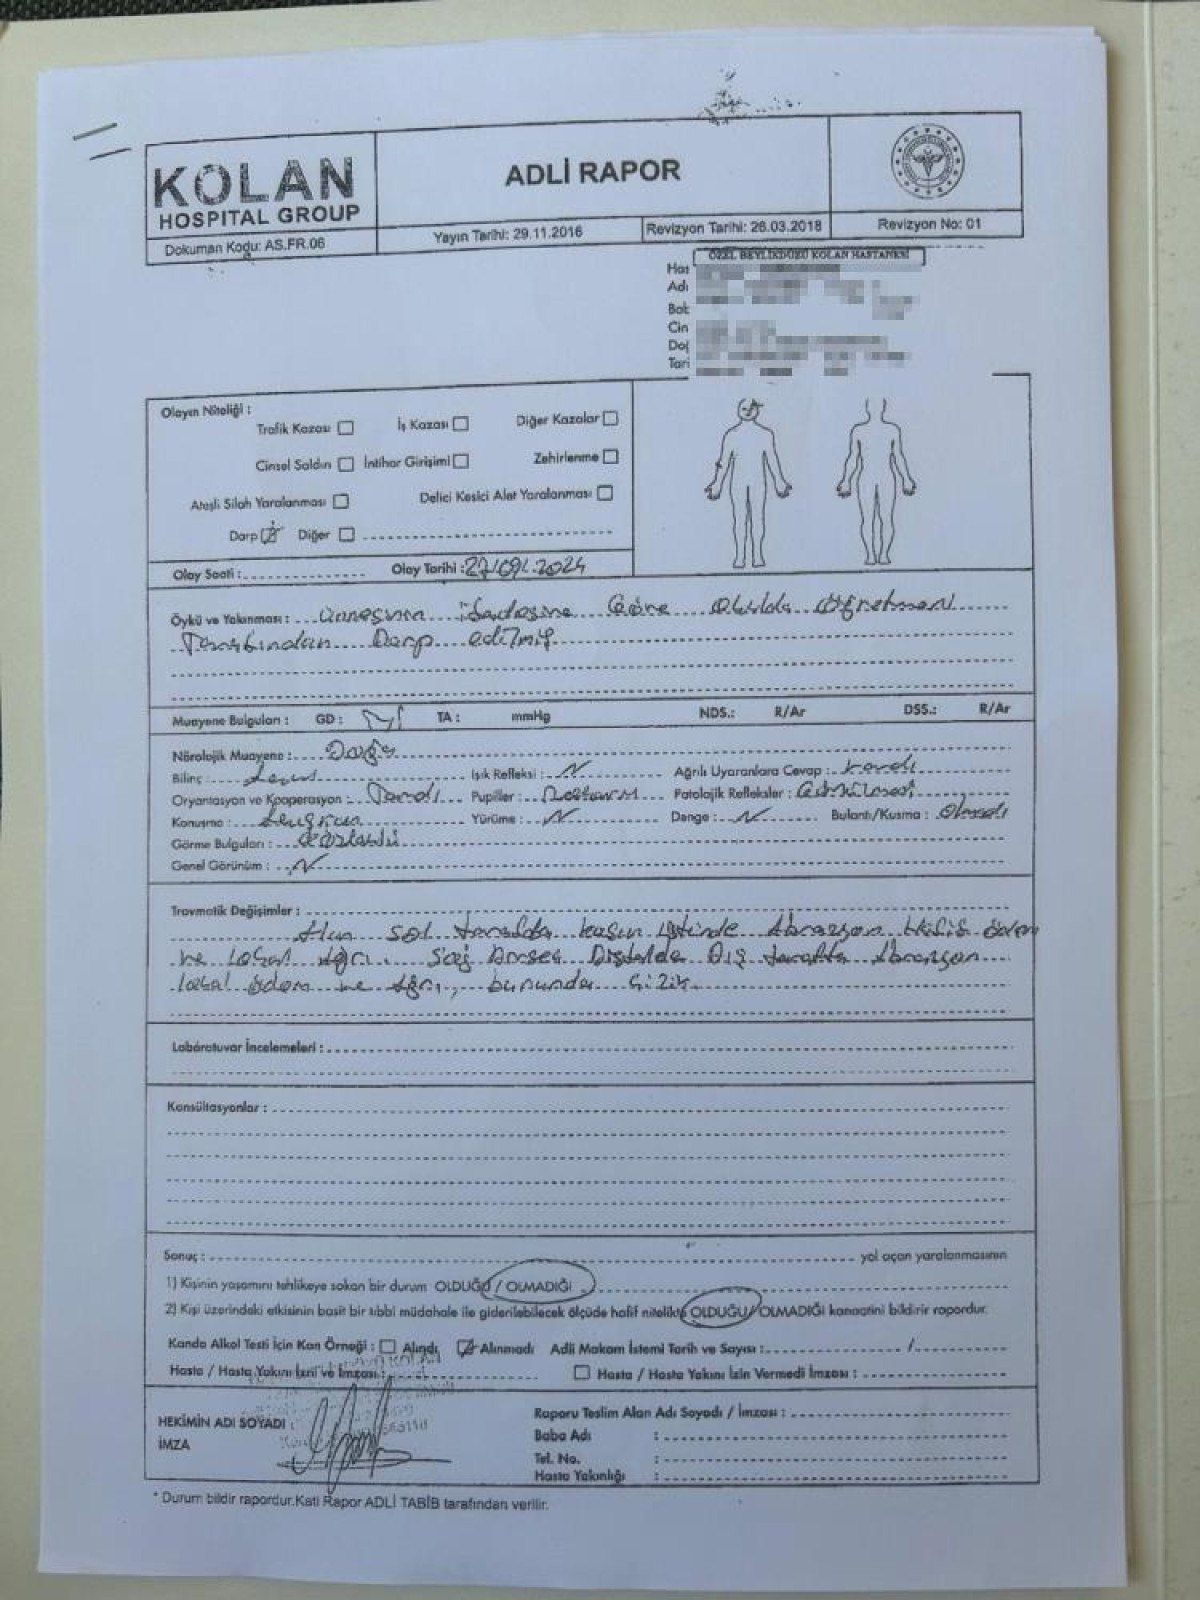 KOLAN
HOSPITAL GROUP
ADLİ RAPOR
Dokuman Kodu: AS.FR.06
Yayın Tarihi: 29.11.2016
Revizyon Tarihi: 26.03.2018
Revizyon No: 01
ÖZEL BEYLİKDÜZÜ KOLAN HASTANESİ
Has
Adı
Bab
Cin
Doğ
Tari
Olayın Niteliği :
Trafik Kazası
İş Kazası
Diğer Kazalar
Cinsel Saldırı
İntihar Girişimi
Zehirlenme
Ateşli Silah Yaralanması
Delici Kesici Alet Yaralanması
Darp
Diğer
Olay Saati :
Olay Tarihi :
Öykü ve Yakınması : Annesinin ifadesine Göre Okulda öğretmeni
Tarafından Darp edilmiş
Muayene Bulguları : GD : TA : mmHg NDS.: R/Ar DSS.: R/Ar
Nörolojik Muayene : Doğal
Bilinç : Işık Refleksi : N Ağrılı Uyaranlara Cevap : vardı
Oryantasyon ve Kooperasyon : Vardı Pupiller : Patolojik Refleksler :
Konuşma : Yürüme : N Denge : N Bulantı/Kusma : Olmadı
Görme Bulguları :
Genel Görünüm : N
Travmatik Değişimler :
Alın sol tarafda kaşın üstünde Abrazyon ödem
ve lokal ağrı. Sağ Distalde Dış tarafta Abrazyon
lokal ödem ve ağrı, burunda çizik.
Laboratuvar İncelemeleri :
Konsültasyonlar :
Sonuç : yol açan yaralanmasının
1) Kişinin yaşamını tehlikeye sokan bir durum OLDUĞU / OLMADIĞI
2) Kişi üzerindeki etkisinin basit bir tıbbi müdahale ile giderilebilecek ölçüde hafif nitelikte OLDUĞU/OLMADIĞI kanaatini bildirir rapordur.
Kanda Alkol Testi İçin Kan Örneği : Alındı Alınmadı Adli Makam İstemi Tarih ve Sayısı : /
Hasta / Hasta Yakını İzni ve İmzası : Hasta / Hasta Yakını İzin Vermedi İmzası :
HEKİMİN ADI SOYADI :
İMZA
Raporu Teslim Alan Adı Soyadı / İmzası :
Baba Adı :
Tel. No. :
Hasta Yakınlığı :
* Durum bildir rapordur.Kati Rapor ADLİ TABİB tarafından verilir.